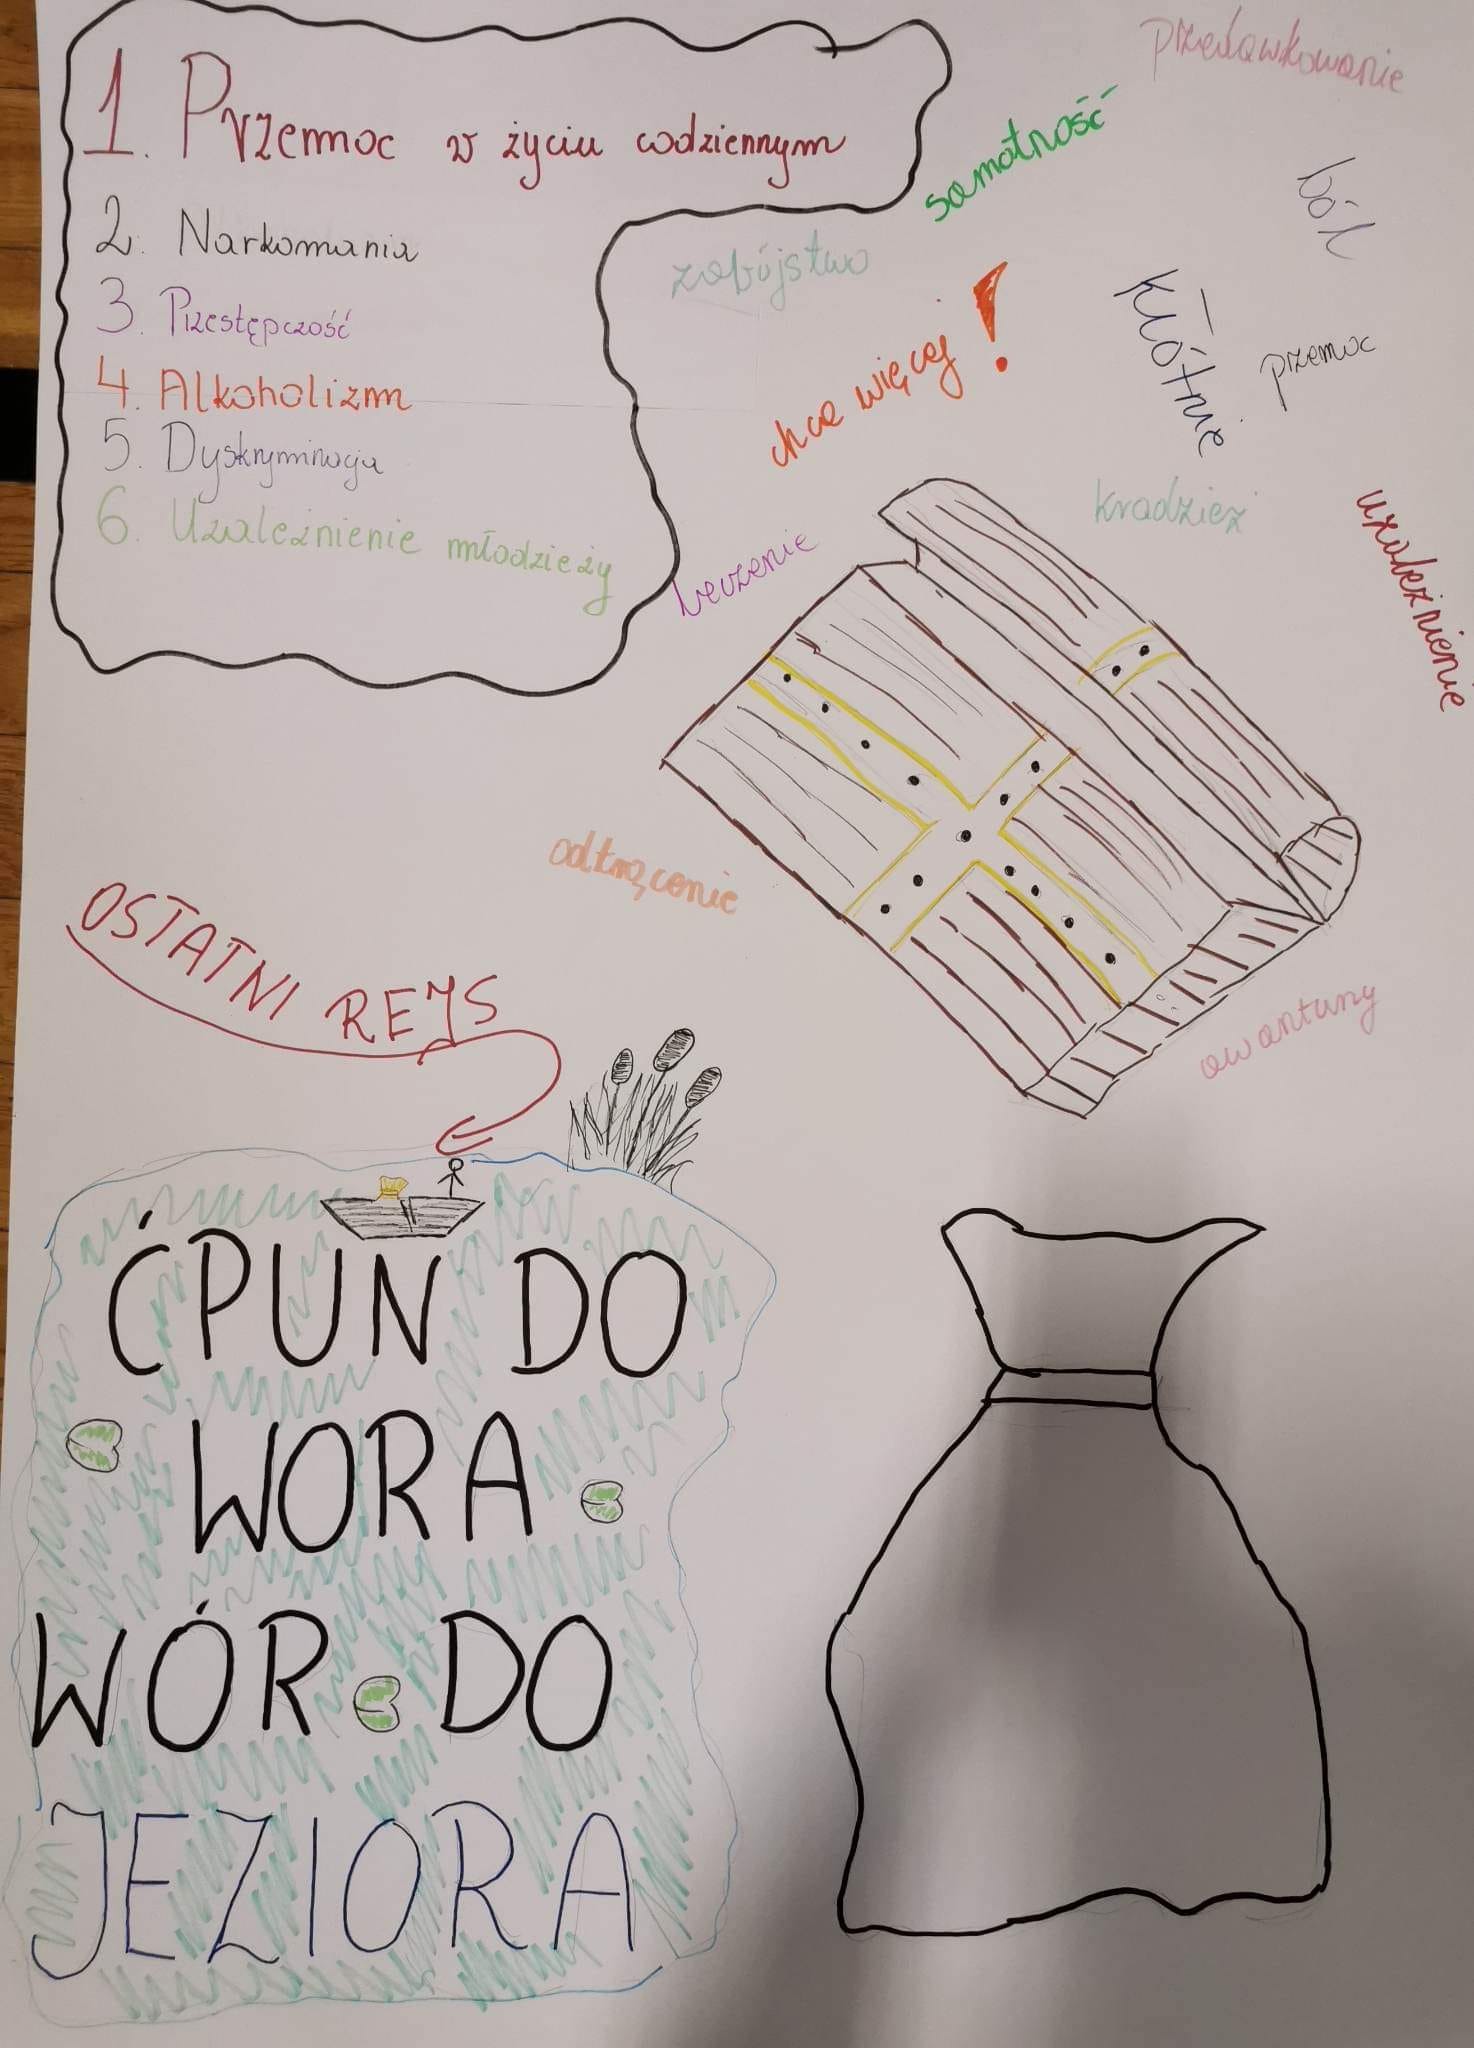 1. Przemoc w życiu codziennym
2. Narkomania
3. Przestępczość
4. Alkoholizm
5. Dyskryminacja
6. Uzależnienie młodzieży
przedawkowanie
samotność
ból
zabójstwo
chcę więcej!
kłótnie
przemoc
kradzież
uzależnienie
leczenie
odtrącenie
awantury
OSTATNI REJS
ĆPUN DO
WORA
WÓR DO
JEZIORA